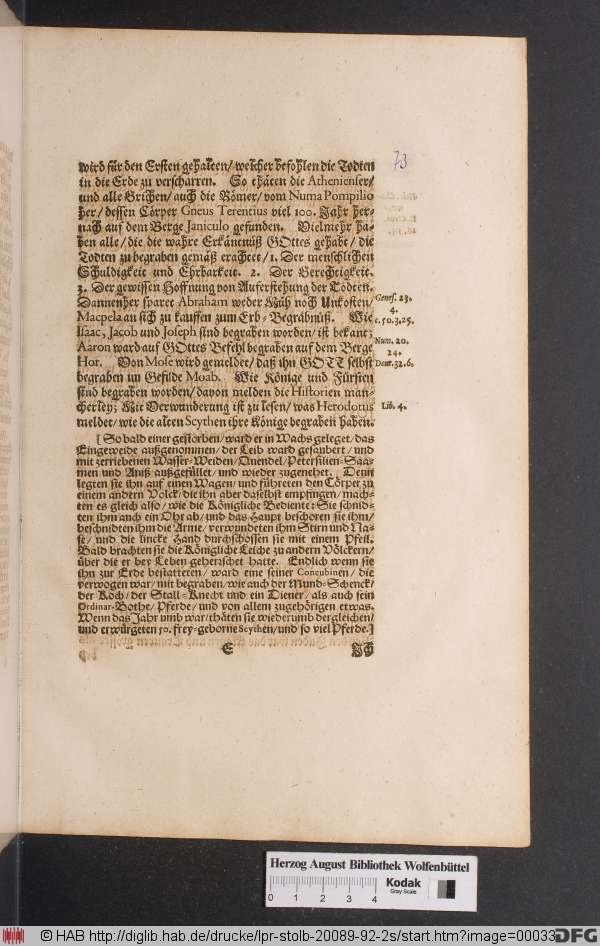 73
wird für den Ersten gehalten/ welcher befohlen die Todten
in die Erde zu verscharren. So thäten die Athenienser/
und alle Grichen/ auch die Römer/ vom Numa Pompilio
her/ dessen Cörper Gneus Terentius viel 100. Jahr her-
nach auf dem Berge Janiculo gefunden. Vielmehr ha-
ben alle/ die die wahre Erkäntnüß GOttes gehabt/ die
Todten zu begraben gemäß erachtet/ 1. Der menschlichen
Schuldigkeit und Ehrbarkeit. 2. Der Gerechtigkeit.
3. Der gewissen Hoffnung von Auferstehung der Todten.
Dannenher sparet Abraham weder Müh noch Unkosten/
Macpela an sich zu kauffen zum Erb-Begräbnüß. Wie
Isaac, Jacob und Joseph sind begraben worden/ ist bekant;
Aaron ward auf GOttes Befehl begraben auf dem Berge
Hor. Von Mose wird gemeldet/ daß ihn GOTT selbst
begraben im Gefilde Moab. Wie Könige und Fürsten
sind begraben worden/ davon melden die Historien man-
cherley; Mit Verwunderung ist zu lesen/ was Herodotus
meldet/ wie die alten Scythen ihre Könige begraben haben.
Genes. 23.
4.
c. 50. 3. 25.
Num. 20.
24.
Deut. 32. 6.
Lib. 4.
[So bald einer gestorben/ ward er in Wachs geleget/ das
Eingeweide außgenommen/ der Leib ward gesäubert/ und
mit zerriebenen Wasser-Weiden/ Quendel/ Petersilien-Saa-
men und Aniß außgefüllet/ und wieder zugenehet. Denn
legten sie ihn auf einen Wagen/ und führeten den Cörper zu
einem andern Volck/ die ihn aber daselbst empfingen/ mach-
ten es gleich also/ wie die Königliche Bediente: Sie schnid-
ten ihm auch ein Ohr ab/ und das Haupt beschoren sie ihm/
beschnidten ihm die Arme/ verwundeten ihm Stirn und Na-
se/ und die lincke Hand durchschossen sie mit einem Pfeil.
Bald brachten sie die Königliche Leiche zu andern Völckern/
über die er bey Leben geherrschet hatte. Endlich wenn sie
ihn zur Erde bestatteten/ ward eine seiner Concubinen/ die
verwogen war/ mit begraben/ wie auch der Mund-Schenck/
der Koch/ der Stall-Knecht und ein Diener/ als auch sein
Ordinar-Bothe/ Pferde/ und von allem zugehörigen etwas.
Wenn das Jahr umb war/ thäten sie wiederumb dergleichen/
und erwürgeten 50. frey-geborne Scythen/ und so viel Pferde.]
E Ich
Herzog August Bibliothek Wolfenbüttel
0 1 2 3 4
Kodak
Gray Scale
© HAB http://diglib.hab.de/drucke/lpr-stolb-20089-92-2s/start.htm?image=00033
DFG